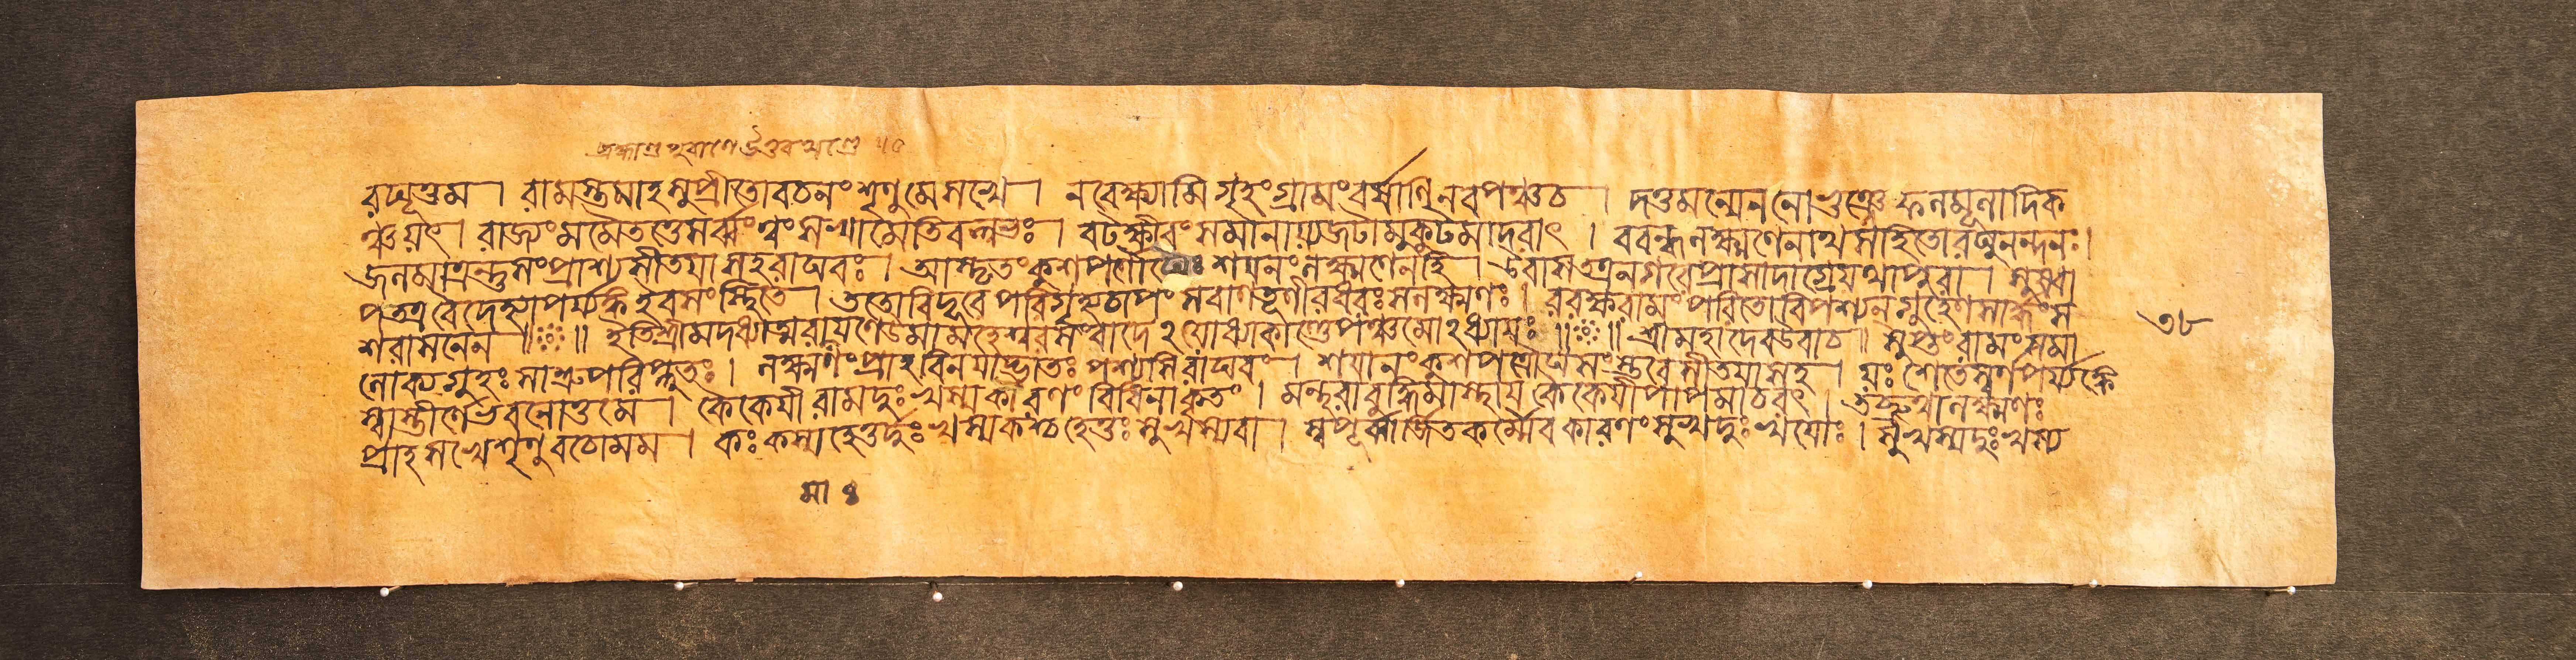 ব্রহ্মাণ্ড পুরাণে উত্তর খণ্ডে ॥০
রঘূত্তম । রামস্তমাহ সুপ্রীতো বচনং শৃণু মে সখে । ন বেক্ষ্যামি গৃহং গ্রামং বর্ষাণি নব পঞ্চ চ । দত্তমন্যেন নো ভুঞ্জে ফলমূলাদিক
ঞ্চ যৎ । রাজ্যং মমৈতত্তে সর্ব্বং ত্বং সখা মেতিবল্লভঃ । বটক্ষীরং সমানায্য জটামুকুটমাদরাৎ । ববন্ধ লক্ষ্মণেনাথ সহিতো রঘুনন্দনঃ ।
জলমাত্রন্তু সংপ্রাশ্য সীতয়া সহ রাঘবঃ । আস্তৃতং কুশপর্ণাদ্যৈঃ শয়নং লক্ষ্মণেন হি । উবাস তত্র নগরে প্রাসাদাগ্রে যথা পুরা । সুষ্বা
প তত্র বৈদেহ্যা পর্য্যঙ্ক ইব সংস্তৃতে । ততো বিদূরে পরিগৃহ্য চাপং সবাণতূণীরধরঃ স লক্ষ্মণঃ । ররক্ষ রামং পরিতো বিপশ্যন্ গুহেন সার্দ্ধং স
শরাসনেন ॥ ॥ ইতি শ্রীমদধ্যাত্মরায়ণে উমামহেশ্বরসংবাদে ঽযোধ্যাকাণ্ডে পঞ্চমোঽধ্যায়ঃ ॥ ॥ শ্রীমহাদেব উবাচ ॥ সুপ্তং রামং সমা
লোক্য গুহঃ সাশ্রুপরিপ্লুতঃ । লক্ষ্মণং প্রাহ বিনয়াদ্ভ্রাতঃ পশ্যসি রাঘবং । শয়ানং কুশপত্রৌঘসংস্তরে সীতয়া সহ । যঃ শেতে স্বর্ণপর্য্যঙ্কে
স্বাস্তীর্ণে ভবনোত্তমে । কৈকেয়ী রামদুঃখস্য কারণং বিধিনা কৃতং । মন্থরাবুদ্ধিমাস্থায় কৈকেয়ী পাপমাচরৎ । তচ্ছ্রুত্বা লক্ষ্মণঃ
প্রাহ সখে শৃণু বচো মম । কঃ কস্য হেতুর্দুঃখস্য কশ্চ হেতুঃ সুখস্য বা । স্বপূর্ব্বার্জ্জিতকর্ম্মৈব কারণং সুখদুঃখয়োঃ । সুখস্য দুঃখস্য
৩৮
মা ৪